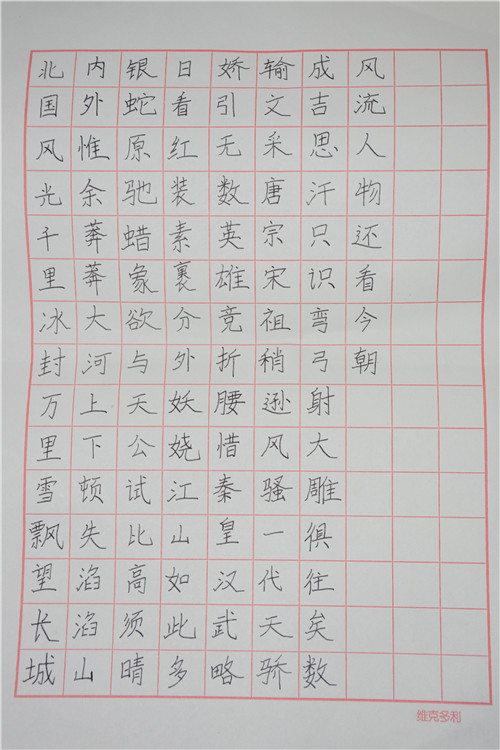 北国风光千里冰封万里雪飘望长城
内外惟余莽莽大河上下顿失滔滔山
银蛇原驰蜡象欲与天公试比高须晴
日看红装素裹分外妖娆江山如此多
娇引无数英雄竞折腰惜秦皇汉武略
输文采唐宗宋祖稍逊风骚一代天骄
成吉思汗只识弯弓射大雕俱往矣数
风流人物还看今朝
维克多利